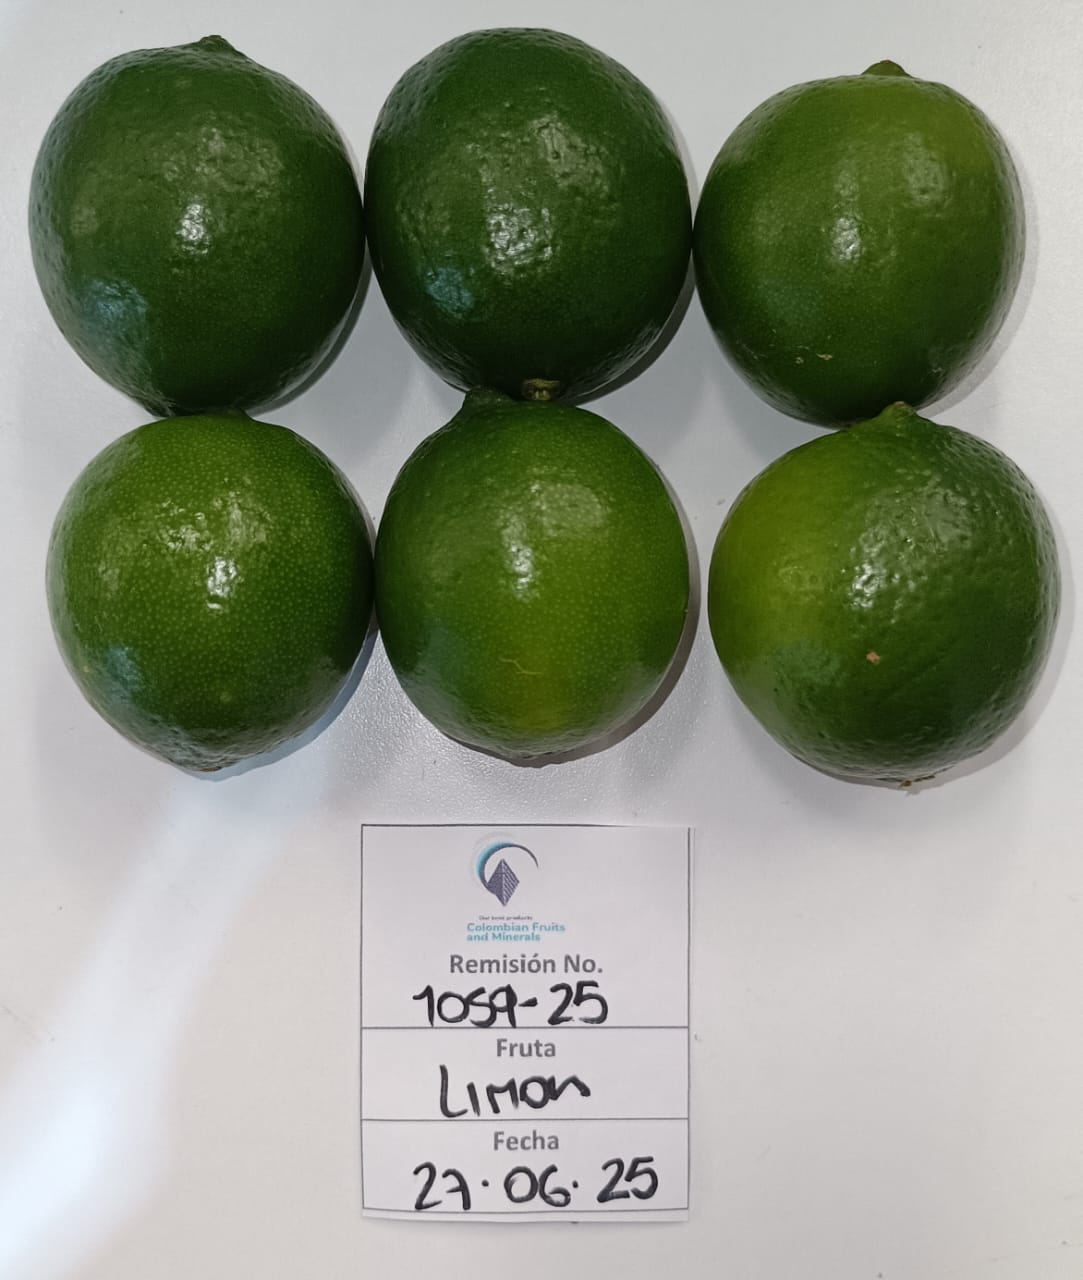 Our best products
Colombian Fruits
and Minerals
Remisión No.
1059-25
Fruta
Limon
Fecha
27.06.25